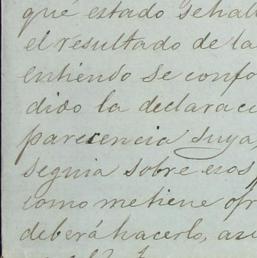 qué estado se hall
el resultado de la
entiendo se confo
dido la declarac
parecencia suya,
seguia sobre esos
como me tiene ofr
deberá hacerlo, asi